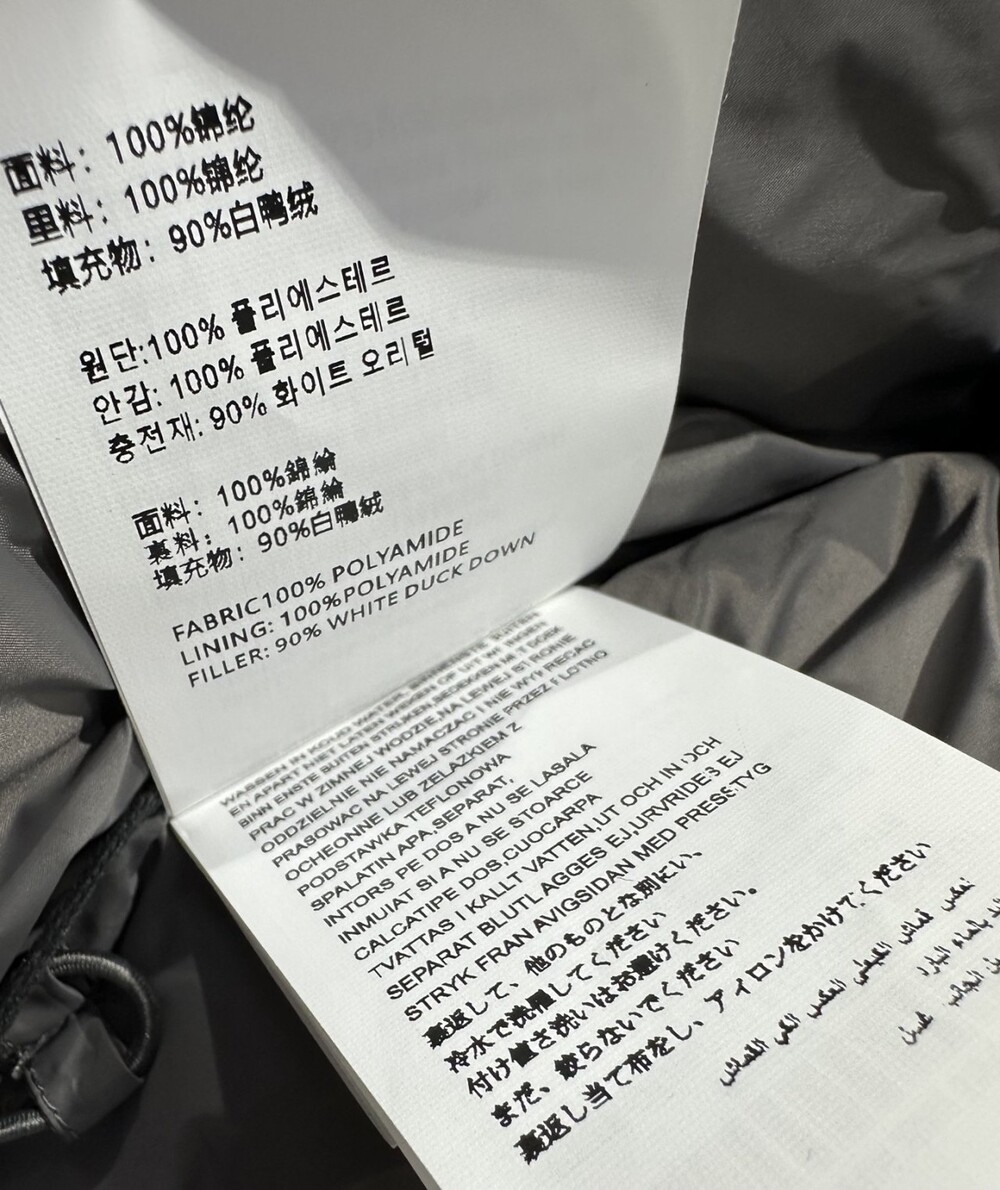 面料：100%锦纶
里料：100%锦纶
填充物：90%白鸭绒
원단:100% 폴리에스테르
안감: 100% 폴리에스테르
충전재: 90% 화이트 오리털
面料：100%錦綸
裏料：100%錦綸
填充物：90%白鴨絨
FABRIC100% POLYAMIDE
LINING: 100%POLYAMIDE
FILLER: 90% WHITE DUCK DOWN
PRAC W ZIMNEJ WODZIE,NA LEWEJ STRONIE
ODDZIELNIE NIE NAMACZAC I NIE WYKRECAC
PRASOWAC NA LEWEJ STRONIE PRZEZ FLOTNO
OCHEONNE LUB ZELAZKIEM Z
PODSTAWKA TEFLONOWA
SPALATIN APA,SEPARAT,
INTORS PE DOS A NU SE LASALA
INMUIAT SI A NU SE STOARCE
CALCATIPE DOS,CUOCARPA
TVATTAS I KALLT VATTEN,UT OCH IN OCH
SEPARAT BLUTLAGGES EJ,URVRIDES EJ
STRYK FRAN AVIGSIDAN MED PRESSTYG
裏返して、他のものとな別にい、
冷水で洗濯してください
付け値き洗いはお避けください。
まだ、絞らないでください
裏返し当て布をし、アイロンをかけてください